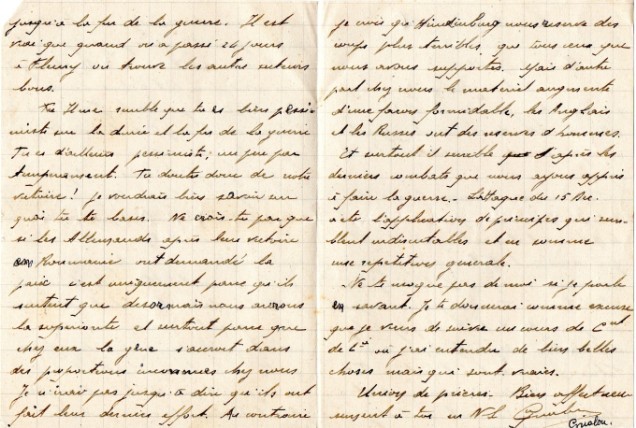 jusqu'à la fin de la guerre. Il est
vrai que quand on a passé 24 jours
à Fleury on trouve les autres secteurs
bons.
Tu me semble que tu es bien pessi
miste sur la durée et la fin de la guerre
Tu es d'ailleurs pessimiste, un peu par
tempérament. Tu doute donc de notre
victoire! Je voudrais bien savoir sur
quoi tu te bases. Ne crois-tu pas que
si les Allemands après leur victoire
en Roumanie ont demandé la
paix c'est uniquement parce qu'ils
sentent que désormais nous avons
la supériorité et surtout parce que
chez eux la gêne s'accroit dans
des proportions inconnues chez nous
Je n'irai pas jusqu'à dire qu'ils ont
fait leur dernier effort. Au contraire
je crois qu'Hindenburg nous réserve des
coups plus terribles, que tous ceux que
nous avons supportés. Mais d'autre
part chez nous le matériel augmente
d'une façon formidable, les Anglais
et les Russes ont des réserves d'hommes.
Et surtout il semble d'après les
derniers combats que nous ayons appris
à faire la guerre. L'attaque du 15 Dec.
a été l'application de principes qui sem-
blent indiscutables et en somme
une répétition générale.
Ne te moque pas de moi si je parle
en savant. Je te donnerai comme excuse
que je viens de suivre un cours de Cont
de Cie où j'ai entendu de bien belles
choses mais qui sont vraies.
Union de prières. Bien affectueu
sement à toi en N.S.